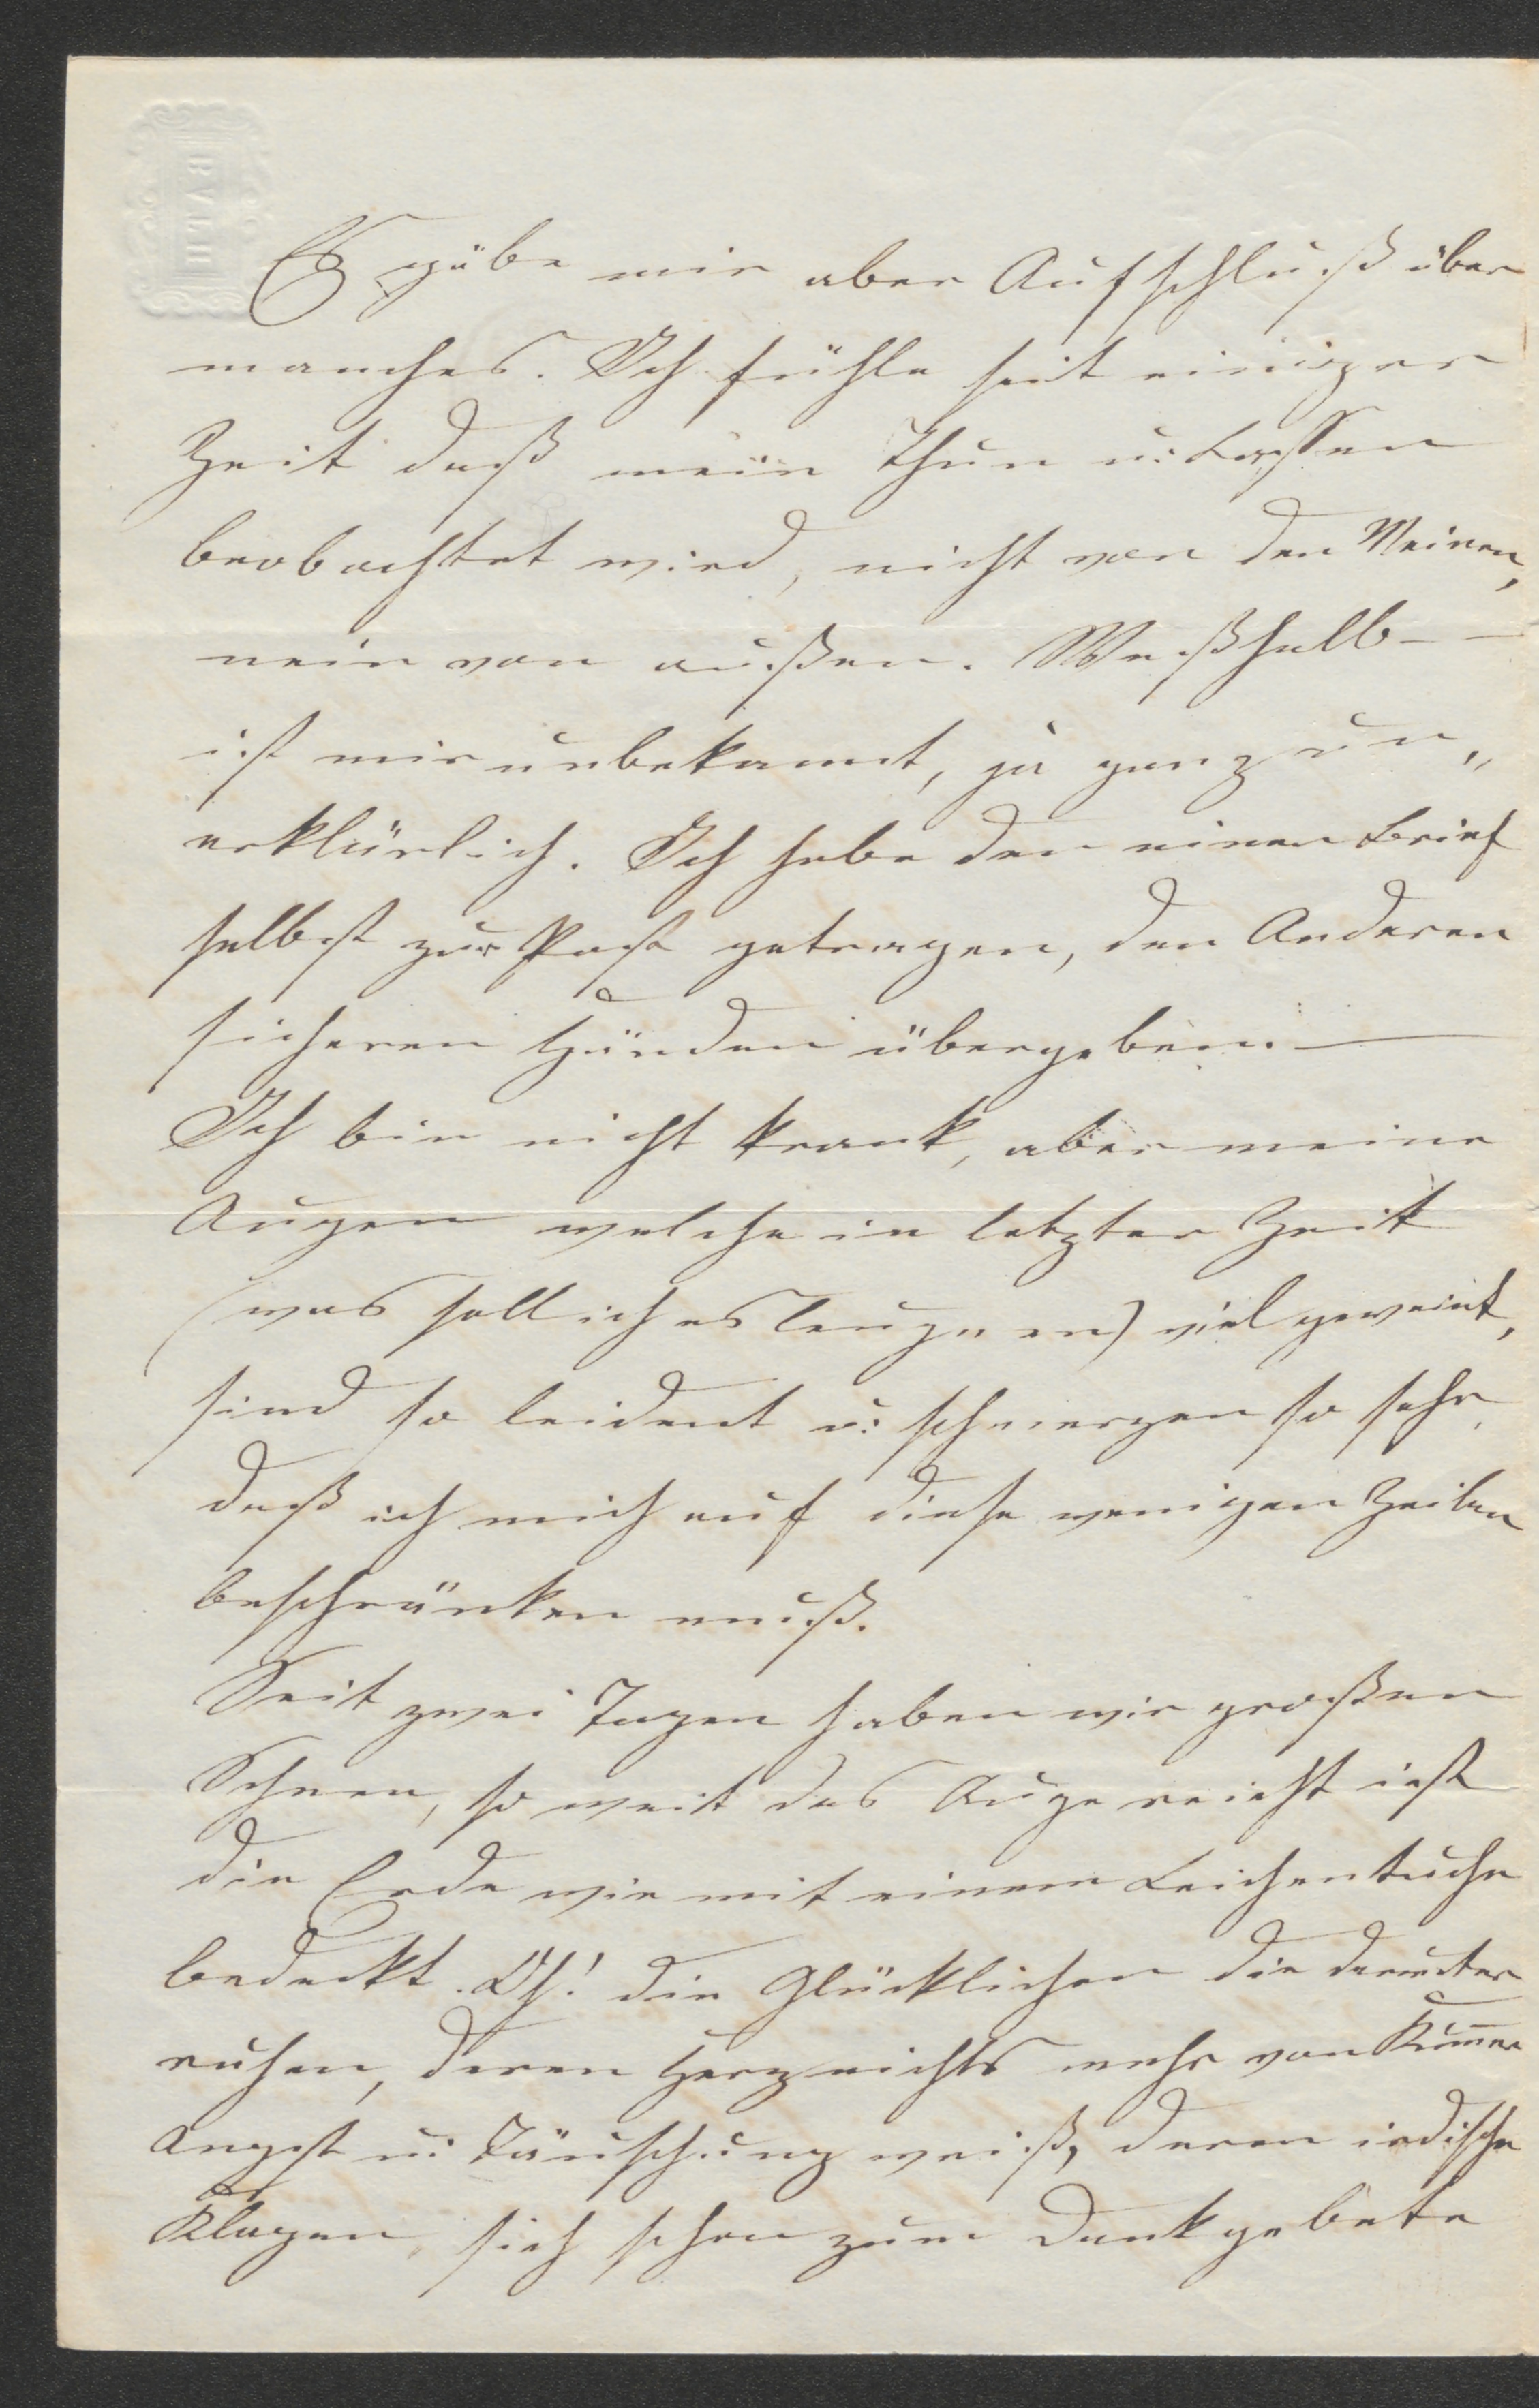 Es gäbe mir aber Aufschluß über
manches. Ich fühle seit einiger
Zeit daß mein Thun u: Lassen
beobachtet wird, nicht von den Meinen,
nein von außen. Weßhalb – –
ist mir unbekannt, ja ganz un„
erklärlich. Ich habe den einen Brief
selbst zur Post getragen, den Anderen
sicheren Händen übergeben. —
Ich bin nicht krank, aber meine
Augen welche in letzter Zeit
(was soll ich es leugnen) viel geweint,
sind so leident u: schmerzen so sehr,
daß ich mich auf diese wenigen Zeilen
beschränken muß.
Seit zwei Tagen haben wir großen
Schnee, so weit das Auge reicht ist
die Erde wie mit einem Leichentuche
bedeckt. Oh! die Glücklichen die darunter
ruhen, deren Herz nichts mehr von Kum̅er
Angst u: Täuschung weiß, deren irdische
Klagen, sich schon zum Dankgebete